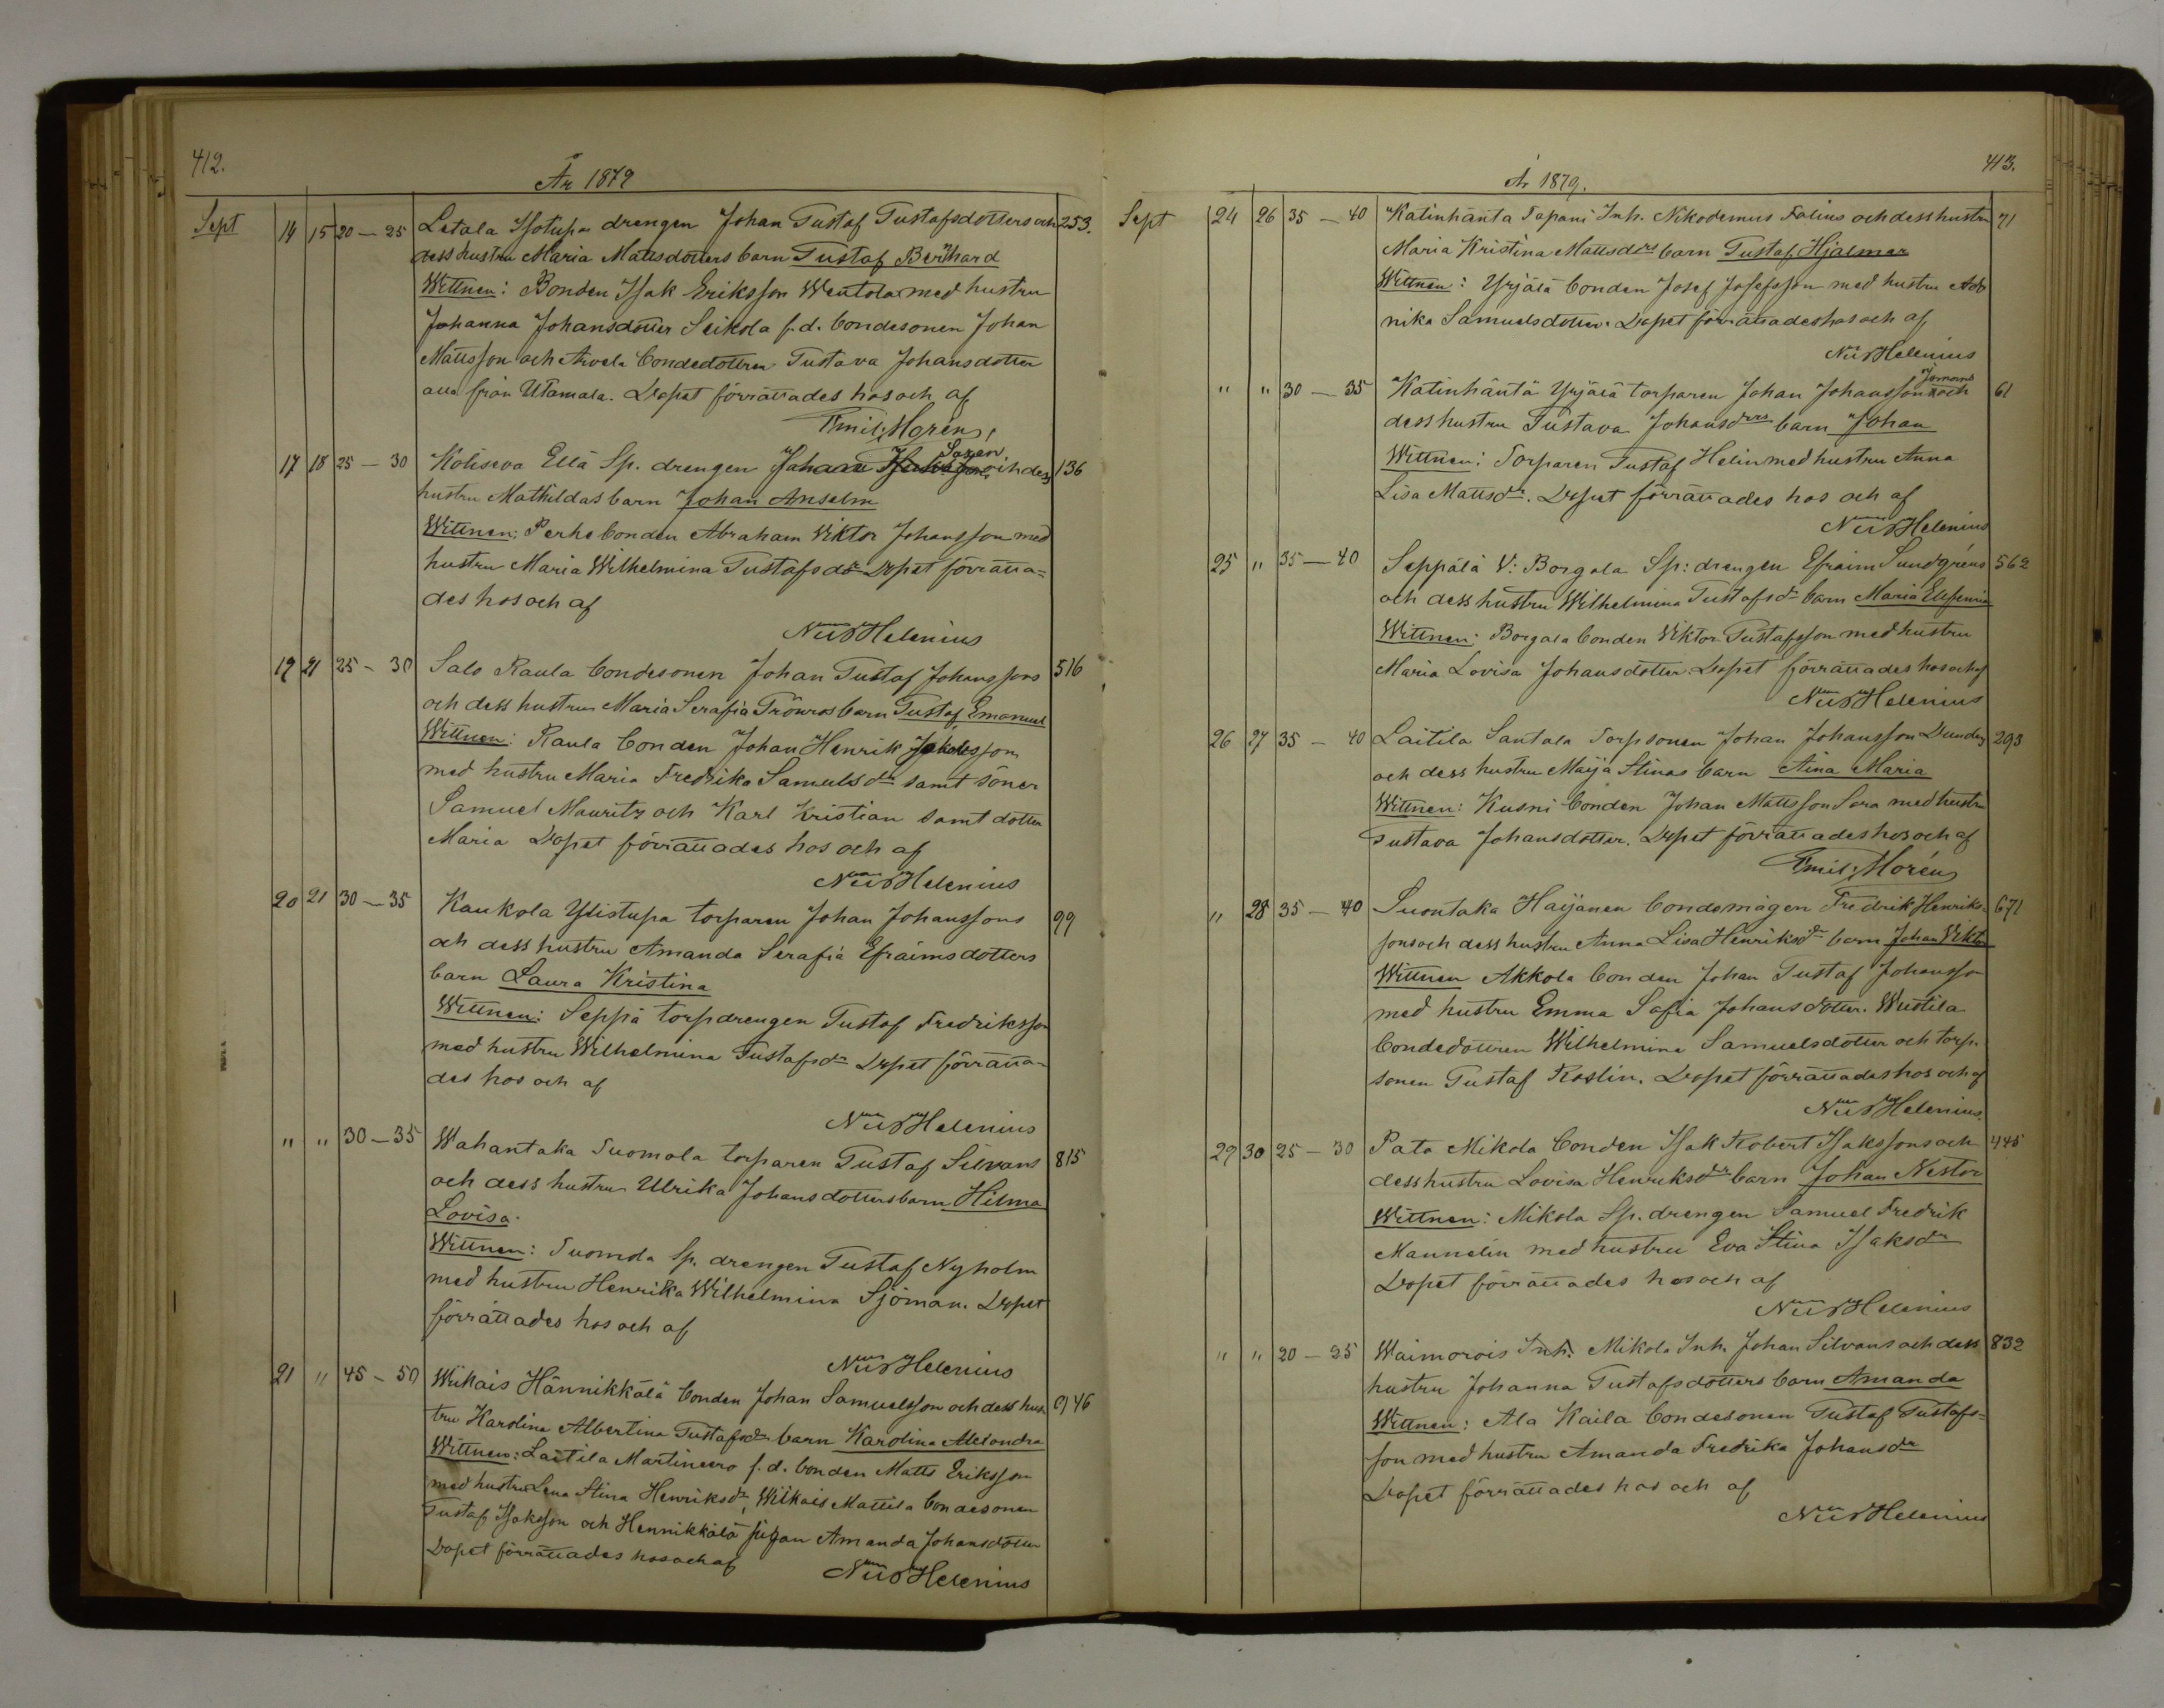 412.
År 1879
Sept 14 15 20 — 25 Letala Isotupa drengen Johan Gustaf Gustafsdotters och 253.
dess hustru Maria Mattsdotters barn Gustaf Bernhard
Wittnen: Bonden Isak Eriksson Wentola med hustru
Johanna Johansdotter Seikola f.d. bondesonen Johan
Mattsson och Arvela bondedottren Gustava Johansdotter
alla från Utamala. Dopet förrättades hos och af
Emil Morén
17 18 25 — 30 Koliseva Ellä Sp. drengen Johan Saxen och dess 136
hustru Mathildas barn Johan Anselm
Wittnen: Perhe bonden Abraham Viktor Johansson med
hustru Maria Wilhelmina Gustafsdr Dopet förrätta=
des hos och af
Nils Helenius
19 21 25 - 30 Salo Raula bondesonen Johan Gustaf Johanssons 516
och dess hustrus Maria Serafia Grönros barn Gustaf Emanuel
Wittnen: Raula bonden Johan Henrik Jakobsson
med hustru Maria Fredrika Samuelsdr samt söner
Samuel Mauritz och Karl Kristian samt dotter
Maria Dopet förrättades hos och af
Nils Helenius
20 21 30 — 35 Kaukola Ylistupa torparen Johan Johanssons 99
och dess hustru Amanda Serafia Efraimsdotters
barn Laura Kristina
Wittnen: Seppä torpdrengen Gustaf Fredriksson
med hustru Wilhelmina Gustafsdr Dopet förrätta-
des hos och af
Nils Helenius
" " 30 — 35 Wahantaka Tuomola torparen Gustaf Silvans 815
och dess hustru Ulrika Johansdotters barn Hilma
Lovisa.
Wittnen: Tuomola Sp. drengen Gustaf Nyholm
med hustru Henrika Wilhelmina Sjöman. Dopet
förrättades hos och af
Nils Helenius
21 " 45 - 50 Wikais Hännikkälä bonden Johan Samuelsson och dess hus- 946
tru Karolina Albertina Gustafsdr barn Karolina Alexandra
Wittnen: Laitila Martineero f.d. bonden Matts Eriksson
med hustru Lena Stina Henriksdr, Wikais Mattila bondesonen
Gustaf Isaksson och Hennikkälä pigan Amanda Johansdotter
Dopet förrättades hos och af
Nils Helenius
413.
År 1879.
Sept 24 26 35 — 40 Katinhäntä Tapani Inh. Nikodemus Falins och dess hustru 71
Maria Kristina Mattsdrs barn Gustaf Hjalmar
Wittnen: Yrjälä bonden Josef Josefsson med hustru Ado
nika Samuelsdotter. Dopet förrättades hos och af
Nils Helenius
" " 30 — 35 Katinhäntä Yrjälä torparen Johan Johansson och 61
dess hustru Gustava Johansdrs barn Johan
Wittnen: Torparen Gustaf Helin med hustru Anna
Lisa Mattsdr. Dopet förrättades hos och af
Nils Helenius
25 " 35 — 40 Seppälä V: Borgola Sp: drengen Efraim Sundgréns 562
och dess hustru Wilhelmina Gustafsdr barn Maria Eufemia
Wittnen: Borgala bonden Viktor Gustafsson med hustru
Maria Lovisa Johansdotter. Dopet förrättades hos och af
Nils Helenius
26 27 35 - 40 Laitila Santala Torpsonen Johan Johansson Lunden 293
och dess hustru Maija Stinas barn Aina Maria
Wittnen: Kusni bonden Johan Mattsson Sora med hustru
Gustava Johansdotter. Dopet förrättades hos och af
Emil Morén
" 28 35 - 40 Suontaka Haijanen bondemågen Fredrik Henriks- 671
sons och dess hustru Anna Lisa Henriksdr barn Johan Viktor
Wittnen Akkola bonden Johan Gustaf Johansson
med hustru Emma Sofia Johansdotter. Wustila
bondedottren Wilhelmina Samuelsdotter och torp-
sonen Gustaf Roslin. Dopet förrättades hos och af
Nils Helenius
29 30 25 - 30 Pato Mikola bonden Isak Robert Isakssons och 445
dess hustru Lovisa Henriksdr barn Johan Nestor
Wittnen: Mikola Sp. drengen Samuel Fredrik
Mannelin med hustru Eva Stina Isaksdr
Dopet förrättades hos och af
Nils Helenius
" " 20 - 25 Waimorois Inh. Mikola Inh. Johan Silvans och dess 832
hustru Johanna Gustafsdotters barn Amanda
Wittnen: Ala Kaila bondesonen Gustaf Gustafs=
son med hustru Amanda Fredrika Johansdr
Dopet förrättades hos och af
Nils Helenius